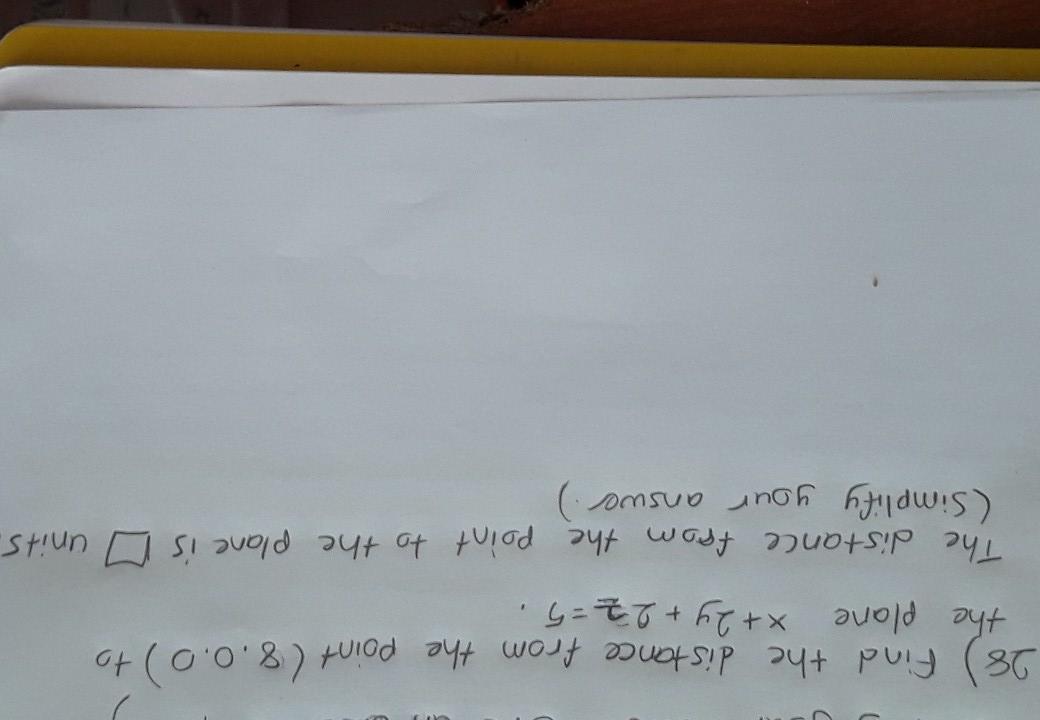 28) Find the distance from the point (8.0.0) to
the plane x+2y+2z=5.
The distance from the point to the plane is □ units.
(Simplify your answer.)